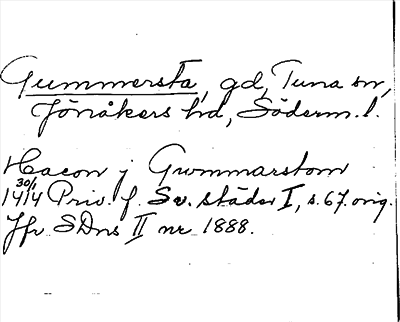 Gummersta, gd, Tuna sn,
Jönåkers hd, Söderm. l.
Hacon j Gummarstom
30/1
1414 Priv. f. Sv. städer I, s. 67. orig.
Jfr SDns II nr 1888.